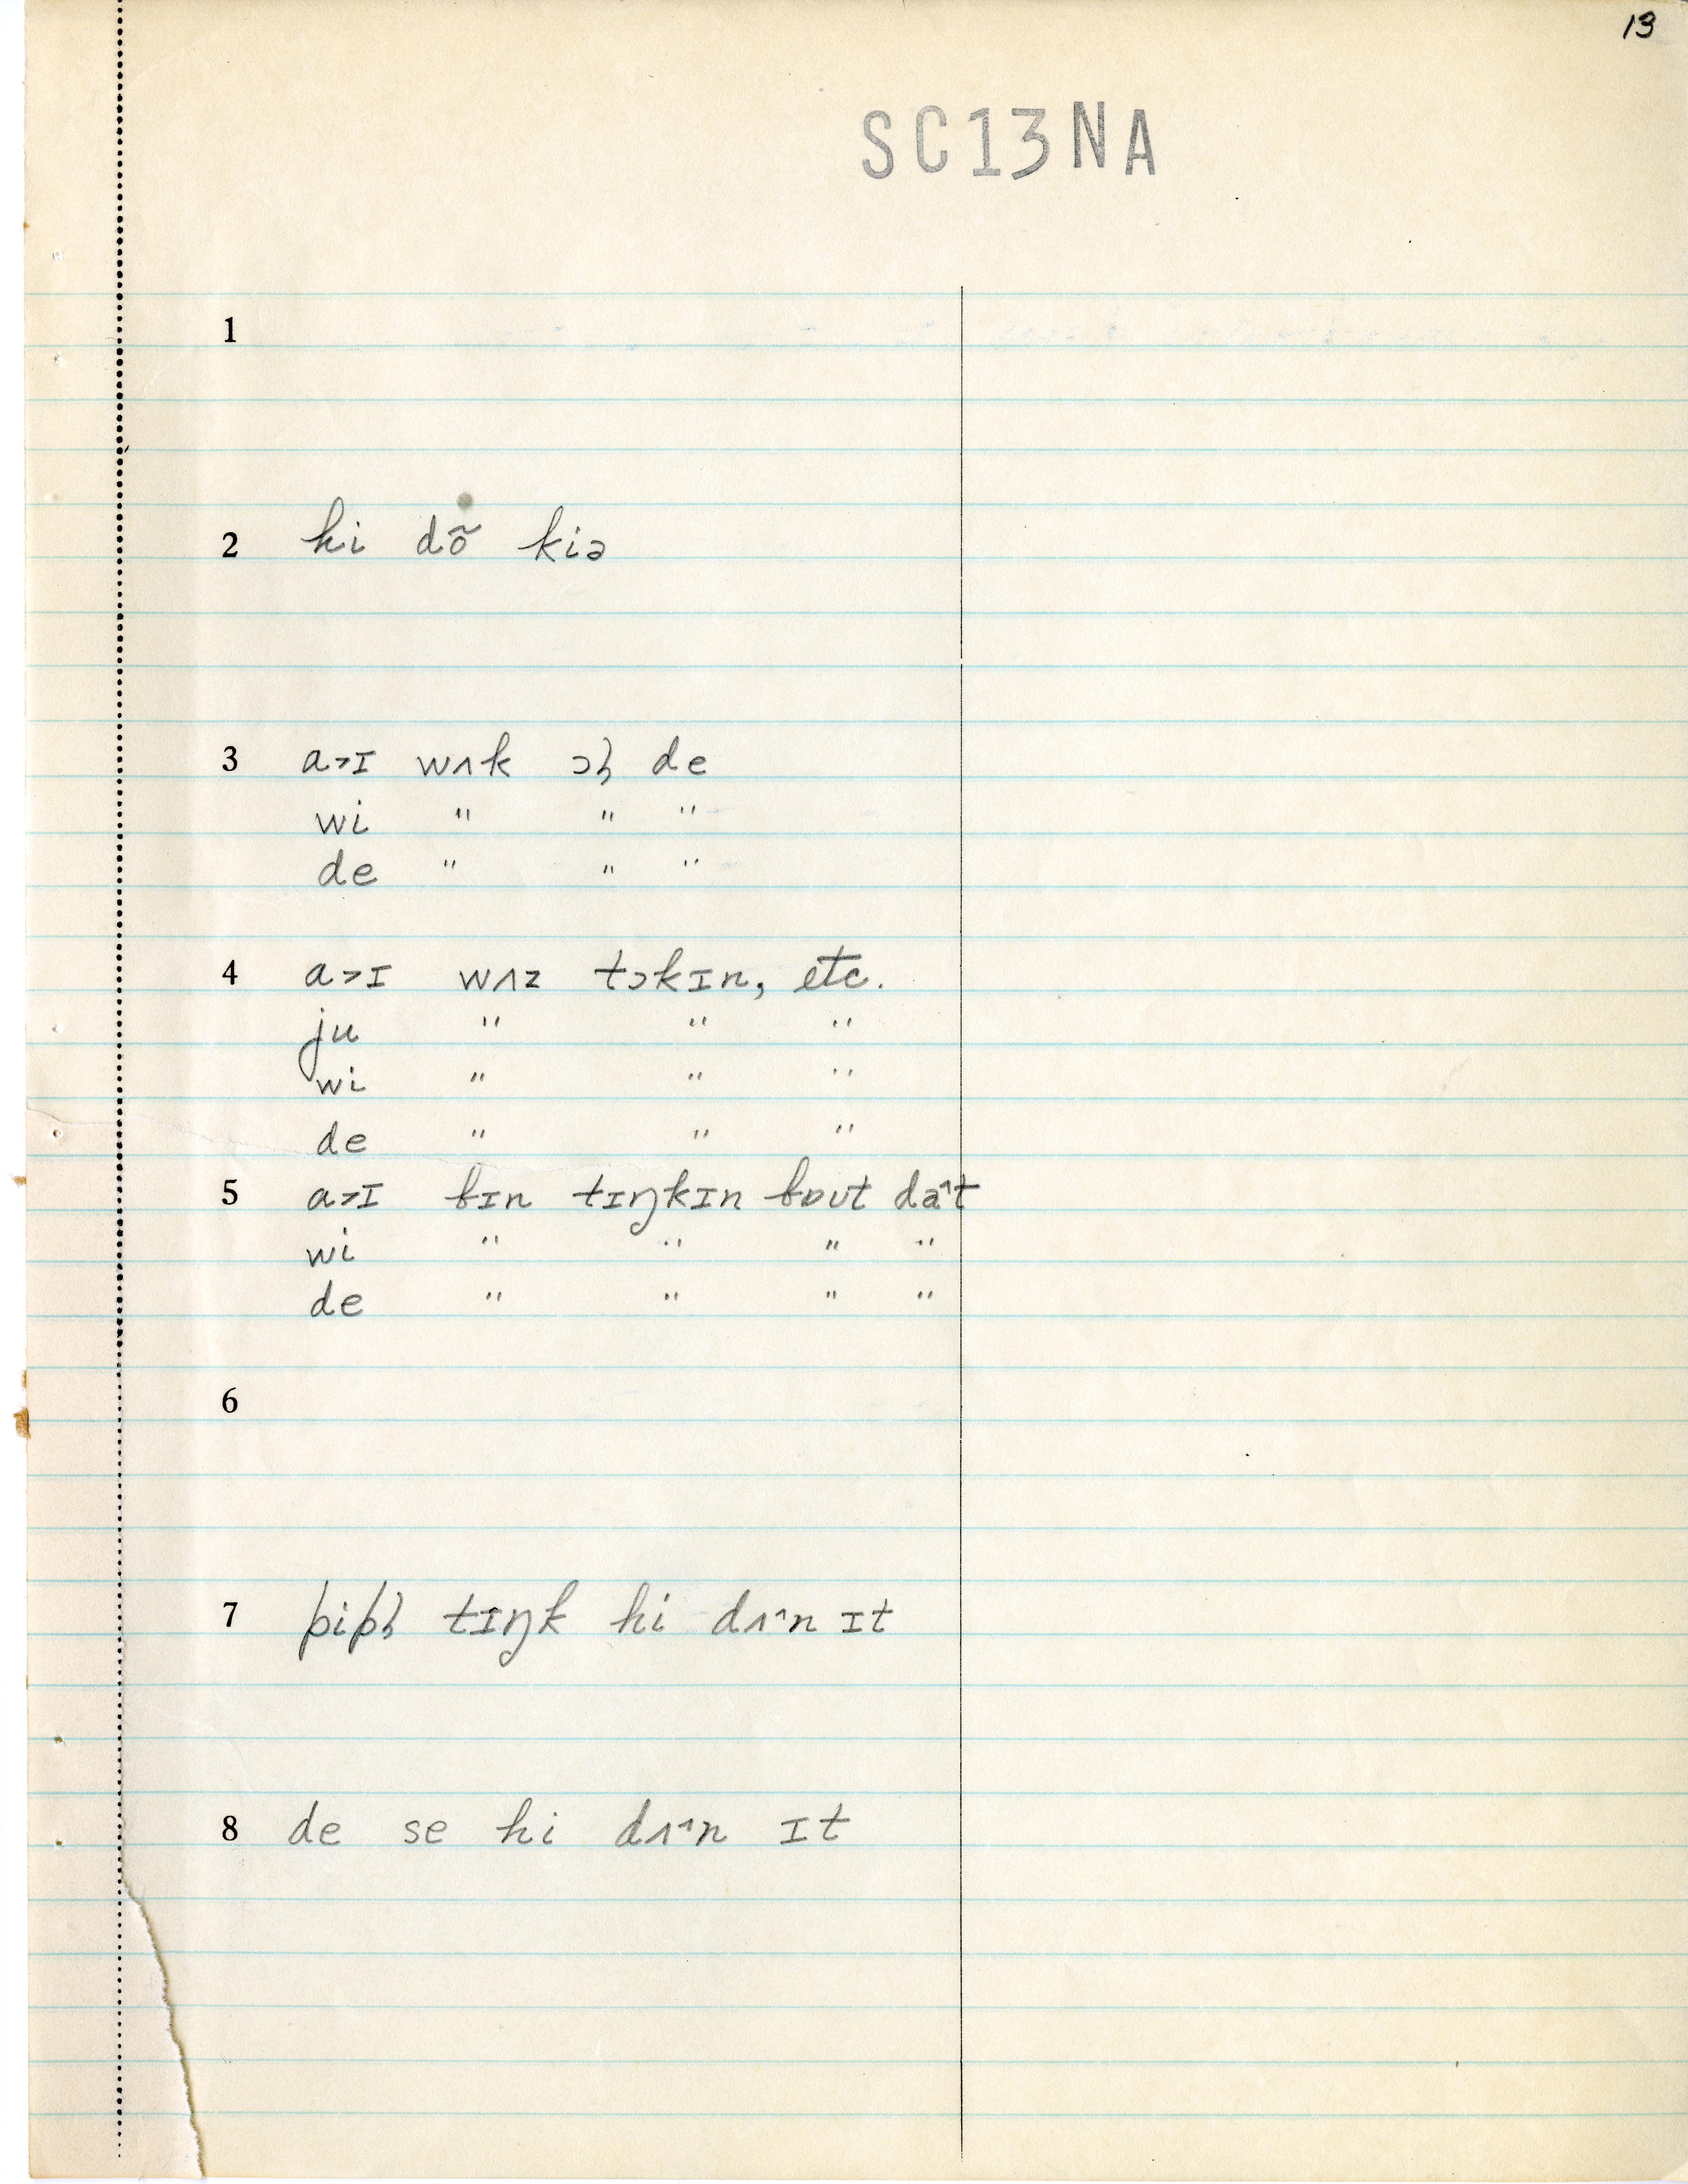 13
SC13NA
1
2 hi dõ kiə
3 a˃ɪ wʌk ɔl̩ de
wi " " "
de " " "
4 a˃ɪ wʌz tɔkɪn, etc.
ju " " "
wi " " "
de " " "
5 a˃ɪ bɪn tɪŋkɪn bɒʊt da˄t
wi " " " "
de " " " "
6
7 pipl̩ tɪŋk hi dʌ˄n ɪt
8 de se hi dʌ˄n ɪt